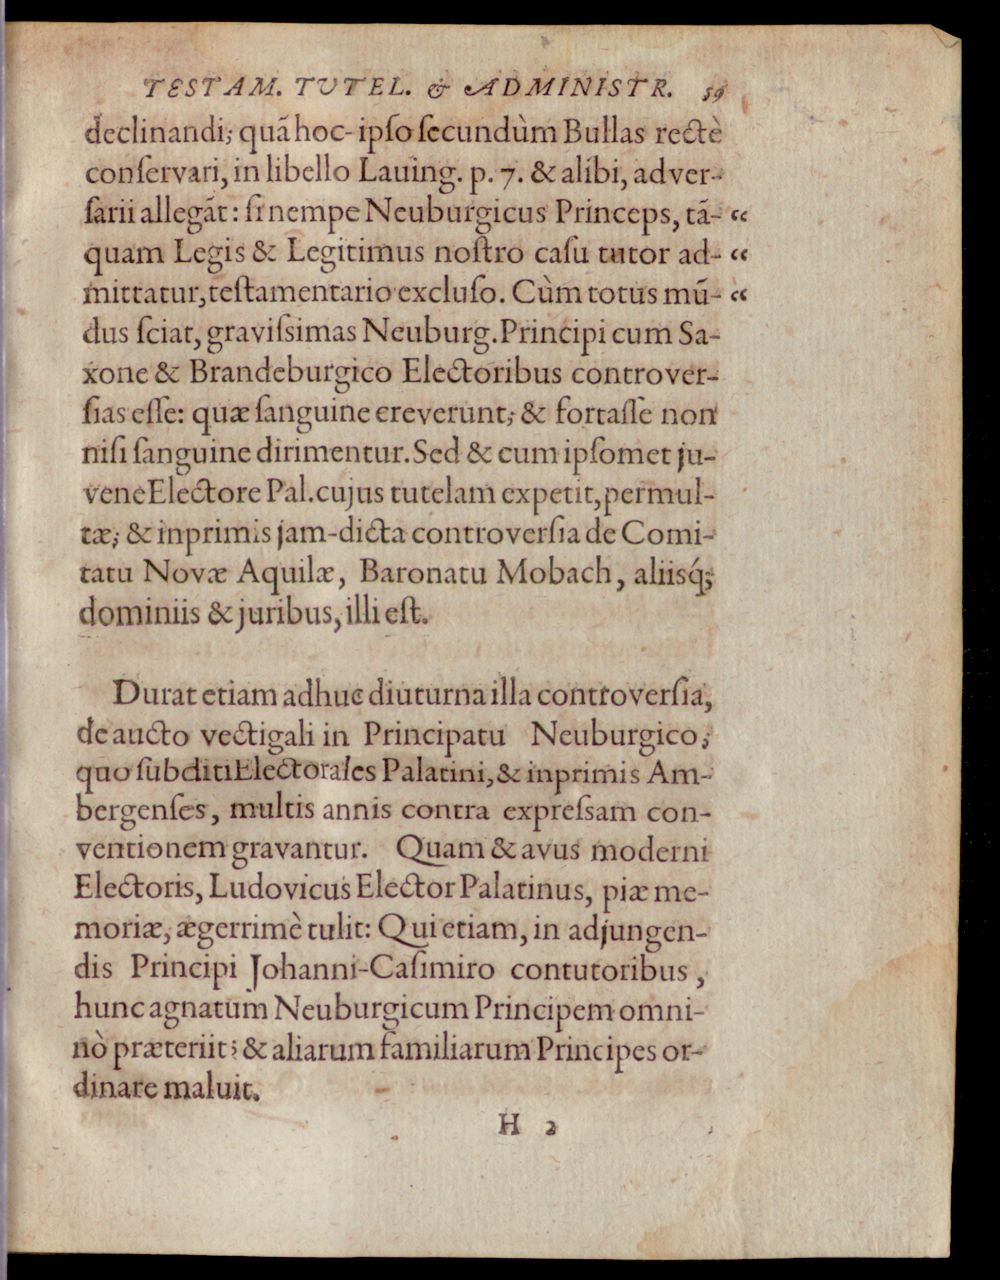 TESTAM. TVTEL. & ADMINISTR. 59
declinandi; quā hoc-ipſo ſecundùm Bullas rectè
conſervari, in libello Lauing. p. 7. & alibi, adver-
ſarii allegāt: ſi nempe Neuburgicus Princeps, tā- “
quam Legis & Legitimus noſtro caſu tutor ad- “
mittatur, teſtamentario excluſo. Cùm totus mū- “
dus ſciat, graviſsimas Neuburg. Principi cum Sa-
xone & Brandeburgico Electoribus controver-
ſias eſſe: quæ ſanguine creverunt; & fortaſſe non
niſi ſanguine dirimentur. Sed & cum ipſomet ju-
vene Electore Pal. cujus tutelam expetit, permul-
tæ; & inprimis jam-dicta controverſia de Comi-
tatu Novæ Aquilæ, Baronatu Mobach, aliisq́;
dominiis & juribus, illi eſt.
Durat etiam adhuc diuturna illa controverſia,
de aucto vectigali in Principatu Neuburgico;
quo ſubditi Electorales Palatini, & inprimis Am-
bergenſes, multis annis contra expreſsam con-
ventionem gravantur. Quam & avus moderni
Electoris, Ludovicus Elector Palatinus, piæ me-
moriæ, ægerrimè tulit: Qui etiam, in adjungen-
dis Principi Johanni-Caſimiro contutoribus,
hunc agnatum Neuburgicum Principem omni-
nò præteriit; & aliarum familiarum Principes or-
dinare maluit.
H 2